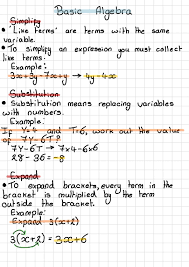 Basic Algebra
Simplify
• 'Like terms' are terms with the same
variable.
• To simplify an expression you must collect
like terms.
Example:
3x+3y-7x+y → 4y-4x
Substitution
• Substitution means replacing variables
with numbers.
Example:
If Y=4 and T=6, work out the value
of 7Y-6T?
7Y-6T → 7×4-6×6
28-36=-8
Expand
• To expand brackets, every term in the
bracket is multiplied by the term
outside the bracket.
Example:
Expand 3(x+2)
3(x+2) = 3x+6